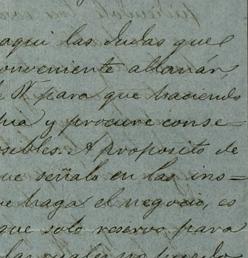 aqui las dudas que
conveniente allanar,
para que haciendo
y procure conse=
sibles. A proposito de
que señala en las ins=
que haga el negocio, es
que solo reservo para